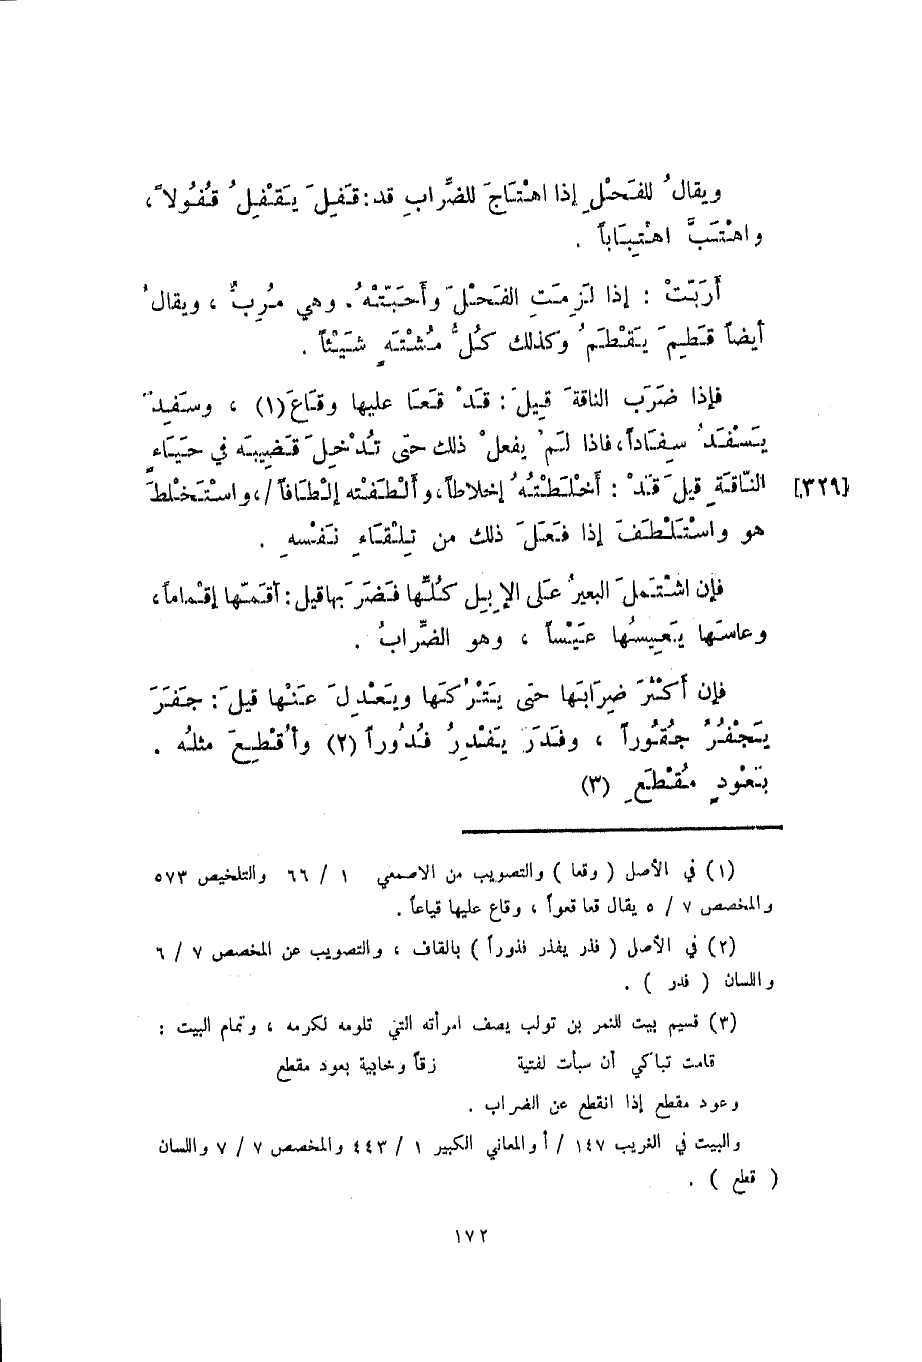 ويقالُ للفَحْلِ إذا اهْتَاجَ للضِّرابِ قد : قَفِلَ يَقْفِلُ قُفُولاً ،
واهْتَبَّ اهْتِبَاباً .
أَرَبَّتْ : إذا لَزِمَتِ الفَحْلَ وأَحَبَّتْهُ . وهي مُرِبٌّ ، ويقالُ
أيضاً قَطِمَ يَقْطَمُ وكذلك كلُّ مُشْتَهٍ شَيْئاً .
فإذا ضَرَبَ الناقةَ قيلَ : قَدْ قَعَا عليها وقَاعَ (١) ، وسَفِدَ
يَسْفَدُ سِفَاداً ، فاذا لَمْ يفعلْ ذلك حتى تُدْخِلَ قَضِيبَه في حَيَاءِ
النَّاقَةِ قيلَ قَدْ : أَخْلَطْتُهُ إخلاطاً ، وأَلْطَفْته إلْطَافاً / ، واسْتَخْلطَ [٣٢٩]
هو واسْتَلْطَفَ إذا فَعَلَ ذلك من تِلْقَاءِ نَفْسِهِ .
فإن اشْتَملَ البعيرُ عَلَى الإبِلِ كُلِّها فَضَرَبَها قيل : أقَمَّها إقْماماً ،
وعاسَها يَعِيسُها عَيْساً ، وهو الضِّرابُ .
فإن أَكْثَرَ ضِرَابَها حتى يَتْرُكَها ويَعْدِلَ عَنْها قيلَ : جَفَرَ
يَجْفُرُ جُفُوراً ، وفَدَرَ يَفْدِرُ فُدُوراً (٢) وأُقْطِعَ مثلُه .
بَعُودٍ مُقْطَعِ (٣)
(١) في الأصل ( وقعا ) والتصويب من الاصمعي ١ / ٦٦ والتلخيص ٥٧٣
والمخصص ٧ / ٥ يقال قعا قعواً ، وقاع عليها قياعاً .
(٢) في الأصل ( فذر يفذر فذوراً ) بالقاف ، والتصويب عن المخصص ٧ / ٦
واللسان ( فدر ) .
(٣) قسيم بيت للنمر بن تولب يصف امرأته التي تلومه لكرمه ، وتمام البيت :
قامت تباكي أن سبأت لفتية زقاً وخابية بعود مقطع
وعود مقطع إذا انقطع عن الضراب .
والبيت في الغريب ١٤٧ / أ والمعاني الكبير ١ / ٤٤٣ والمخصص ٧ / ٧ واللسان
( قطع ) .
١٧٢